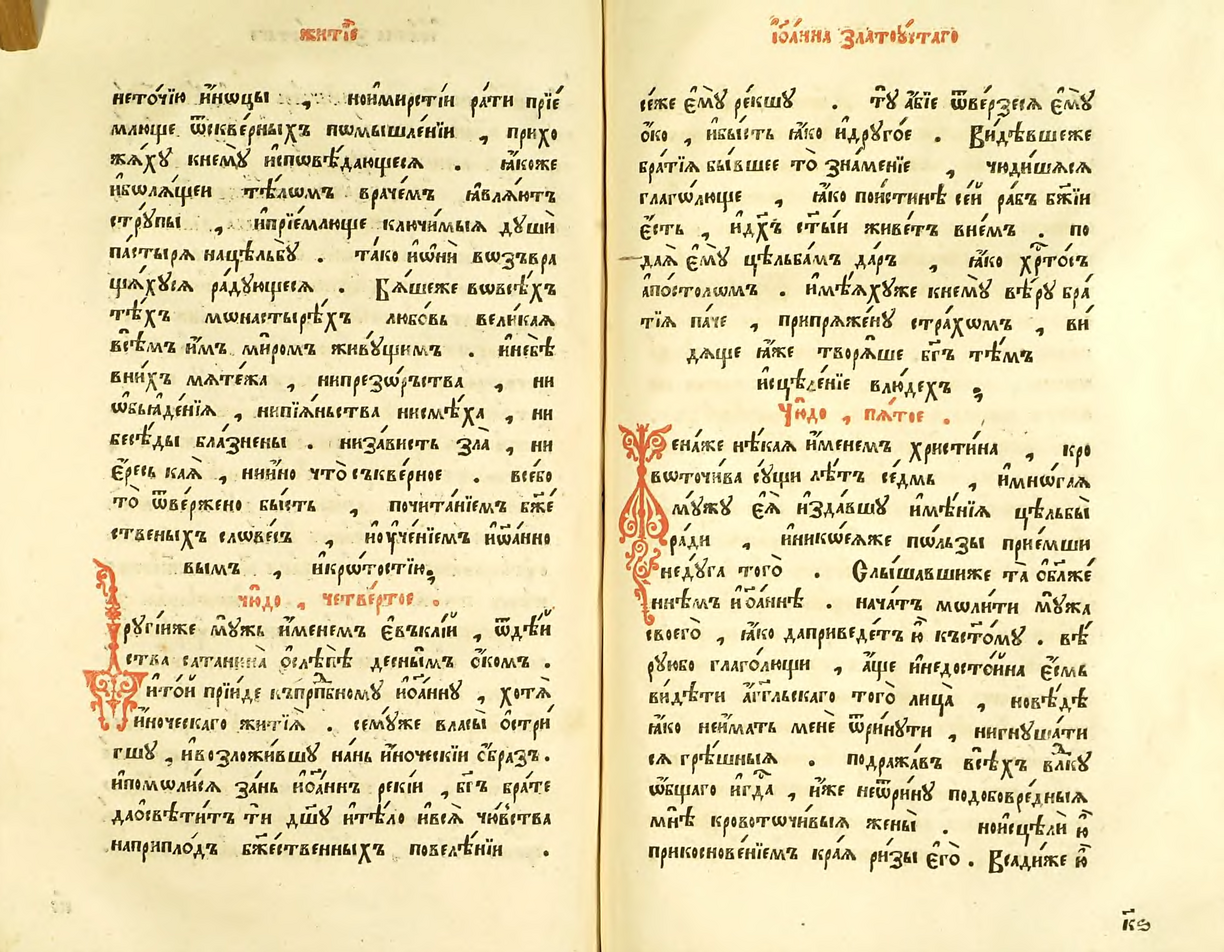 житїе
неточїю и҆́нѡцы , ноимирстїи ра́ти прїе́
млюще ѿскве́рныхъ пѡмышле́нїи , прихо
жѧ́хꙋ кнемꙋ̀ и҆спѡвѣ́дающесѧ . ꙗ҆́коже
и҆бѡлѧ́щеи тѣ́лѡмъ враче́мъ ꙗ҆влѧ́ютъ
стрꙋ́пы , и҆прїе́млюще ключи́мыѧ дꙋшѝ
па́стырѧ нацѣльбꙋ̀ . та́ко и҆ѡ҆нѝ вѡзъвра
щѧ́хꙋсѧ ра́дꙋющесѧ . Бѧ́шеже вѡвсѣ́хъ
тѣ́хъ мѡнастырѣ́хъ любо́вь вели́каѧ
всѣ́мъ и҆́мъ ми́ромъ живꙋ́щимъ . и҆небѣ̀
вни́хъ мѧте́жа , нипрезѡ́рьства , ни
ѡ҆бьꙗде́нїѧ , нипїѧ́ньства нисмѣ́ха , ни
бесѣ́ды бла́знены . низа́висть зла̀ , ни
є҆́ресь каѧ̀ , нии҆́но что̀ съкве́рное . всебо
то̀ ѿве́ржено бы́сть , почита́нїемъ бж҃е́
ственыхъ слѡве́съ , иоу҆че́нїемъ и҆ѡа́нно
вымъ , и҆кро́тостїю ,
чю́до , четве́ртое .
Дрꙋгі́иже мꙋ́жь и҆́менемъ є҆въкли́и , ѿдѣ́и
ства сатанина̀ ѻ҆слѣ́пѣ десны́мъ ѻ҆́комъ .
и҆то́и прїи́де къпрпⷣбномꙋ и҆ѻа́ннꙋ , хотѧ̀
и҆́ноческаго житїѧ̀ . семꙋ́же власы̀ ѻ҆стри́
гшꙋ , и҆возложи́вшꙋ на́нь и҆́ноческїи ѻ҆́бразъ .
и҆помѡли́сѧ за́нь и҆ѻа́ннъ рекі́и , бг҃ъ бра́те
даѻсвѣти́тъ тѝ дш҃ꙋ и҆тѣ́ло и҆всѧ̀ чю́вства
наприпло́дъ бж҃е́ственныхъ повелѣ́нїи .
і҆ѻа́нна златоꙋ́стаго
се́же є҆мꙋ̀ ре́кшꙋ . тꙋ̀ а҆́бїе ѿве́рзесѧ є҆мꙋ̀
ѻ҆́ко , и҆бы́сть ꙗ҆́ко и҆дрꙋго́е . Ви́дѣвшеже
бра́тїѧ бы́вшее то̀ зна́менїе , чюди́шѧсѧ
глаго́люще , ꙗ҆́ко пои́стинѣ се́й ра́бъ бж҃їи
є҆́сть , и҆дх҃ъ ст҃ы́и живе́тъ вне́мъ . по
даѧ̀ є҆мꙋ̀ цѣльба́мъ да́ръ , ꙗ҆́ко хрⷭ҇то́съ
а҆по́столѡмъ . и҆мѣѧ́хꙋже кнемꙋ̀ вѣ́рꙋ бра́
тїѧ па́че , припрѧже́нꙋ стра́хѡмъ , ви́
дѧще ꙗ҆́же творѧ́ше бг҃ъ тѣ́мъ
и҆сцѣле́нїе влю́дехъ ,
Чю́до , пѧ́тое .
Жена́же нѣ́каѧ и҆́менемъ христи́на , кро
вѡточи́ва сꙋ́щи лѣ́тъ се́дмь , и҆мно́гаѧ
мꙋ́жꙋ є҆ѧ̀ и҆здавшꙋ̀ и҆мѣ́нїѧ цѣльбы̀
ра́ди , и҆никѡеѧ́же по́льзы прїе́мши
недꙋ́га того̀ . Слы́шавшиже та̀ ѻ҆блаже́
ннѣмъ и҆ѻа́ннѣ . нача́тъ моли́ти мꙋ́жа
своего̀ , ꙗ҆́ко даприведе́тъ ю҆̀ къст҃о́мꙋ . вѣ́
рꙋюбо глаго́лющи , а҆́ще и҆недосто́йна є҆́смь
ви́дѣти а҆́гг҃льскаго того̀ лица̀ , новѣ́дѣ
ꙗ҆́ко неи҆́мать менѐ ѿри́нꙋти , нигнꙋша́ти
сѧ грѣ́шныѧ . подража́въ всѣ́хъ влⷣкꙋ
ѻ҆́бщаго и҆гдⷭ҇а , и҆́же неѿри́нꙋ подобовре́дныѧ
мнѣ̀ кровото́чивыѧ жены̀ . нои҆сцѣлѝ ю҆̀
прикоснове́нїемъ кра́ѧ ри́зы є҆го̀ . Всади́же ю҆̀
к҃ѕ